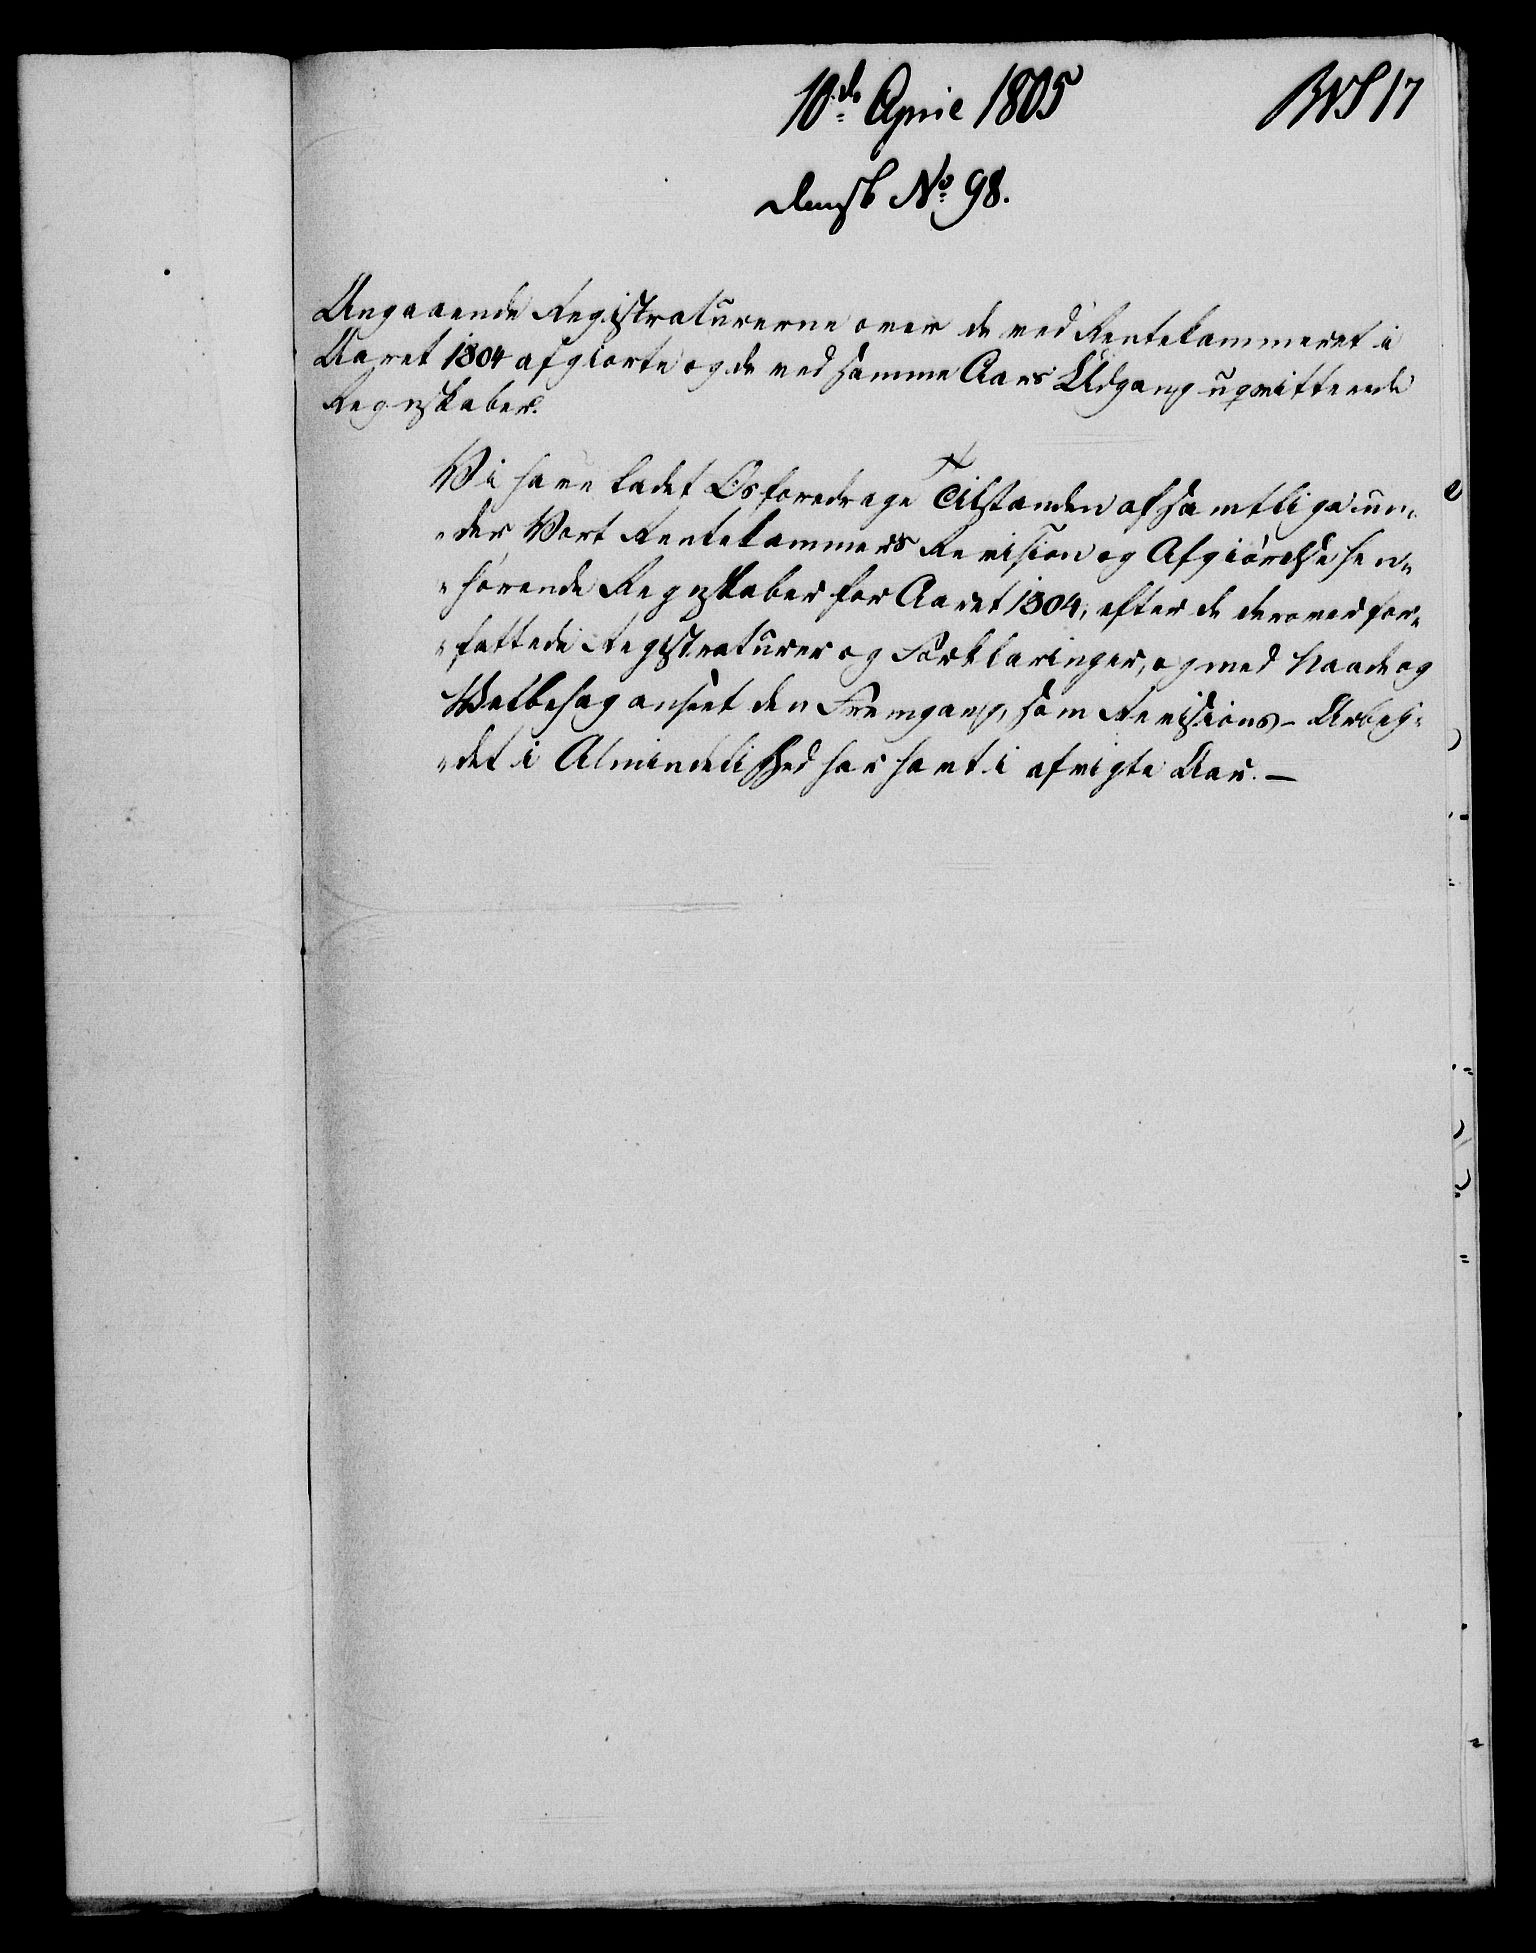 10de April 1805
17
dansk No 98.
Angaaende Registraturerne over de ved Rentekammeret i
Aaret 1804 afgiorte og de ved samme Aars Udgang uqvitterede
Regnskaber.
Vi have ladet Os foredrage Tilstanden af samtlige un-
der Vort Rentekammers Revision og Afgiørelse hen-
hørende Regnskaber for Aaret 1804, efter de derover for-
fattede Registraturer og Forklaringer, og med Naade og
Velbehag anseet den Fremgang, som Revisions-Arbej-
det i Almindelighed har havt i afvigte Aar. —